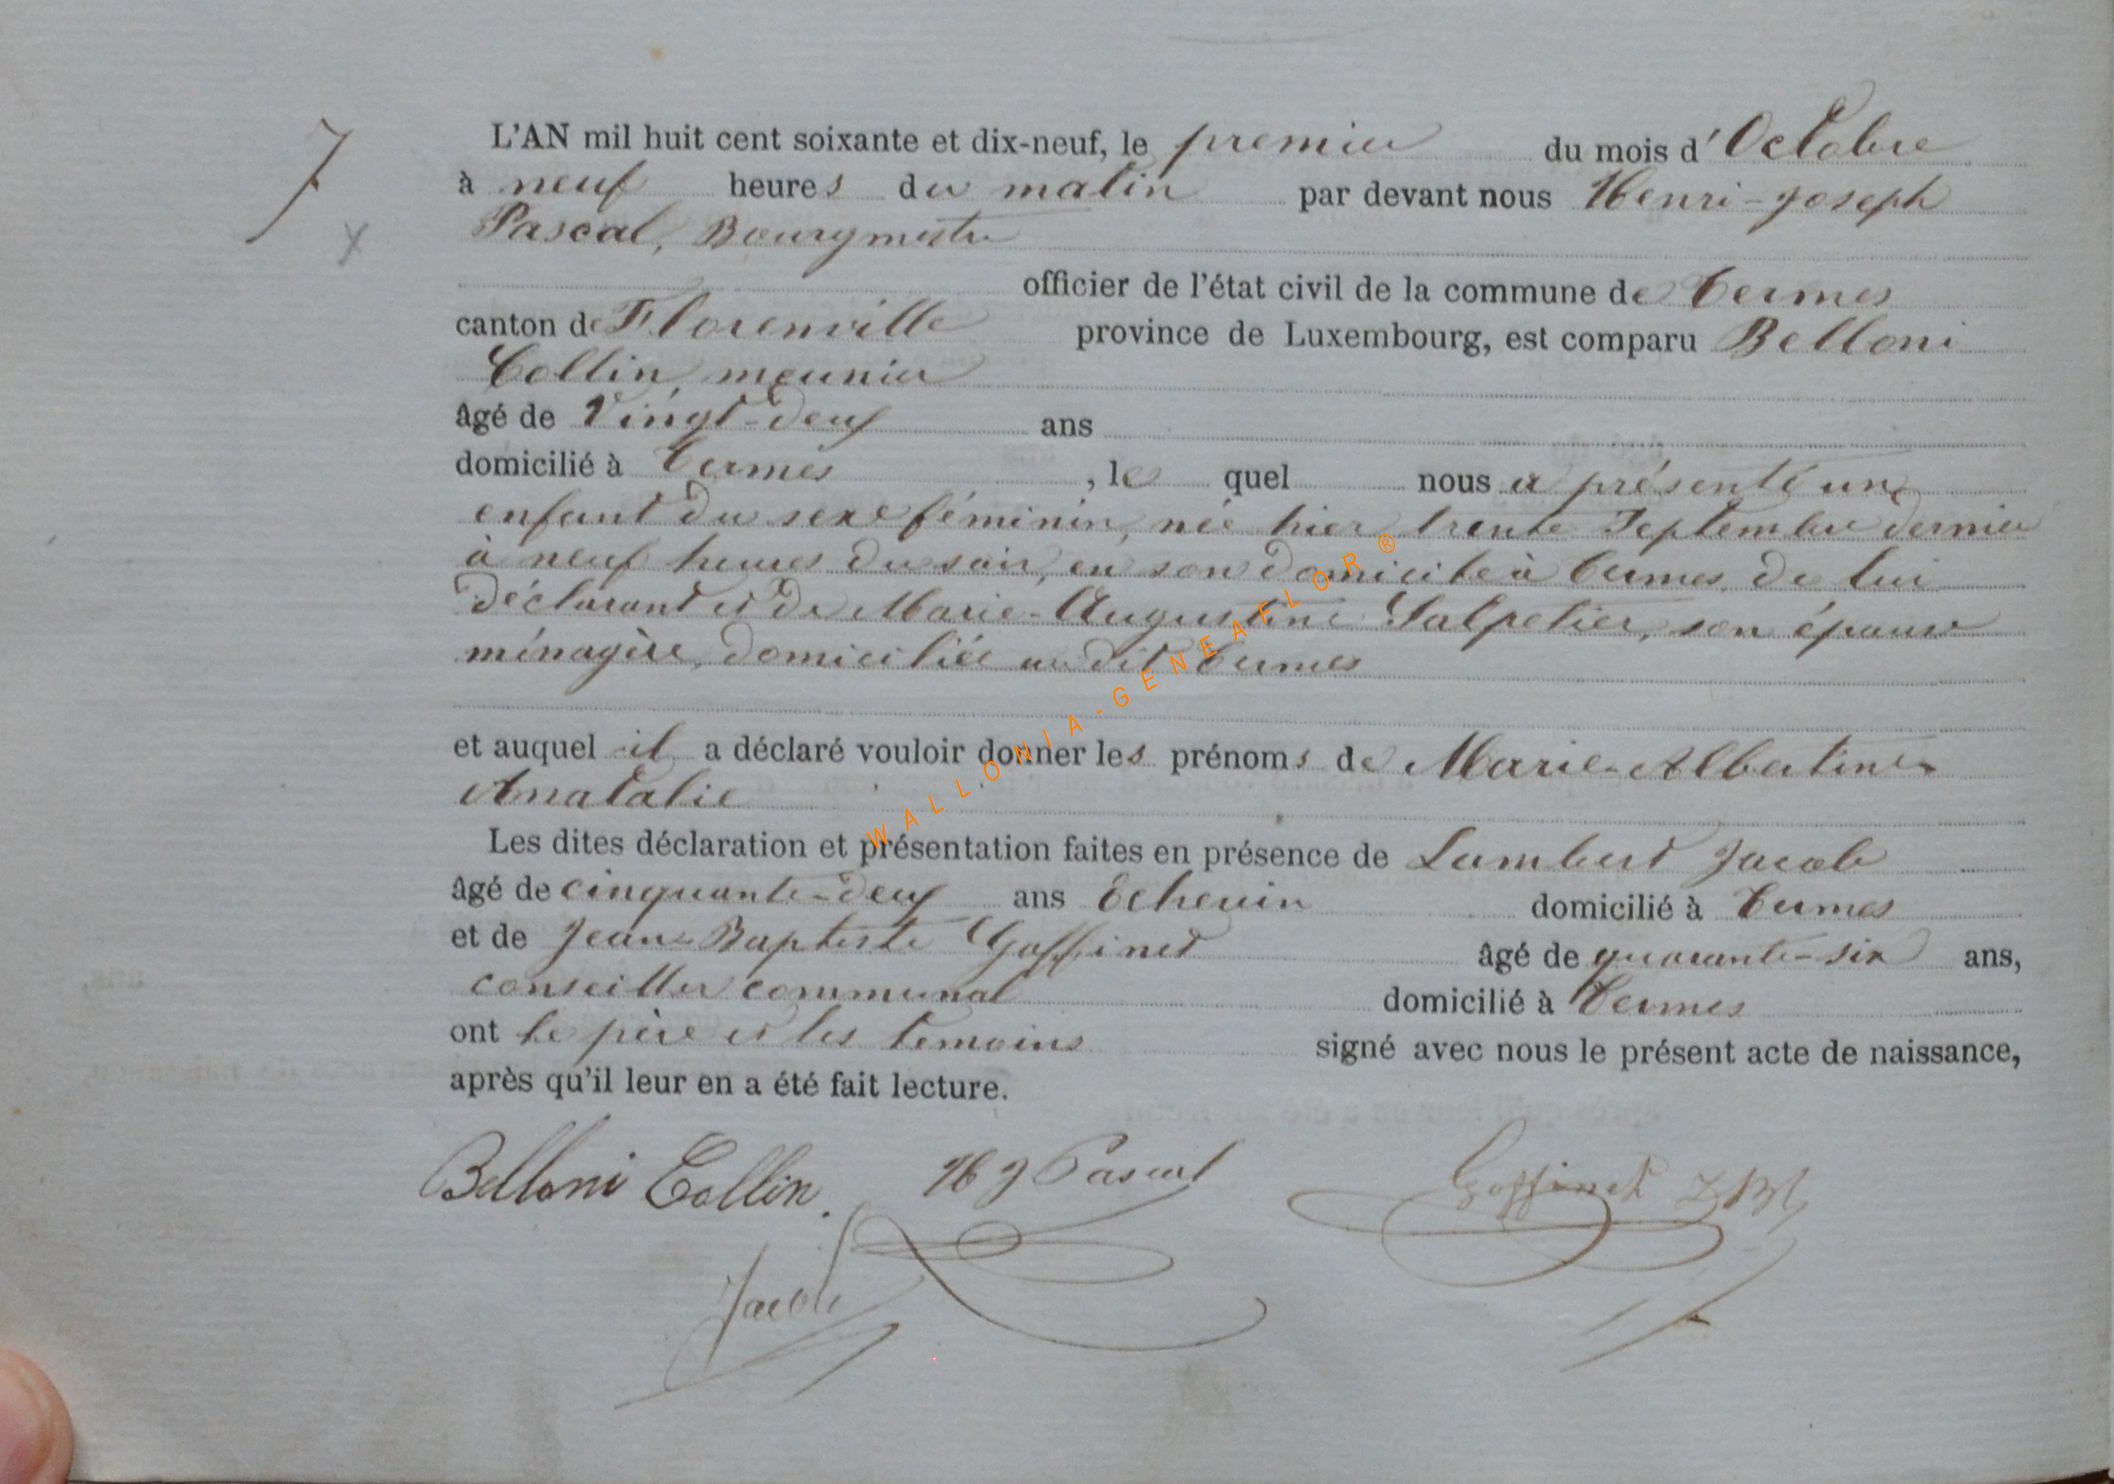 7
x
L'AN mil huit cent soixante et dix-neuf, le premier du mois d'Octobre
à neuf heures du matin par devant nous Henri-Joseph
Pascal, Bourgmestre
officier de l'état civil de la commune de Termes
canton de Florenville province de Luxembourg, est comparu Belloni
Collin, meunier
âgé de Vingt-deux ans
domicilié à Termes, le quel nous a présenté un
enfant du sexe féminin, née hier trente Septembre dernier
à neuf heures du soir, en son domicile à Termes, de lui
déclarant et de Marie-Augustine Salpetier, son épouse
ménagère, domiciliée au dit Termes
et auquel il a déclaré vouloir donner les prénoms de Marie-Albertine
Anatalie
Les dites déclaration et présentation faites en présence de Lambert Jacob
âgé de cinquante-deux ans Echevin domicilié à Termes
et de Jean-Baptiste Goffinet âgé de quarante-six ans,
conseiller communal domicilié à Termes
ont le père et les temoins signé avec nous le présent acte de naissance,
après qu'il leur en a été fait lecture.
Belloni Collin. H J Pascal Goffinet J Bt
Jacob
WALLONIA-GENEAFLOR®